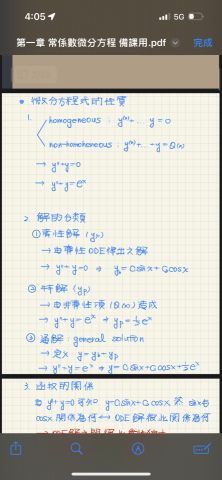 4:05
5G
第一章 常係數微分方程 備課用.pdf
完成
• 微分方程式的性質
1.
homogeneous : y⁽ⁿ⁾+... y=0
non-homogeneous : y⁽ⁿ⁾... +y=Q(x)
→ y"+y=0
→ y"+y=eˣ
2. 解的分類
① 齊性解
→ 由齊性ODE得出之解
→ y"+y=0 ⇒ yₕ=C₁sinx+C₂cosx
② 特解 (yp)
→ 由非齊性項 (Q(x)) 造成
→ y"+y=eˣ ⇒ yp=½eˣ
③ 通解 : general solution
→ 定义 y=yₕ+yp
→ y"+y=eˣ ⇒ y=C₁sinx+C₂cosx+½eˣ
3. 函數的關係
由 y"+y=0 可知 y=C₁sinx+C₂cosx
cosx 關係為何 ↔ ODE解彼此關係為何